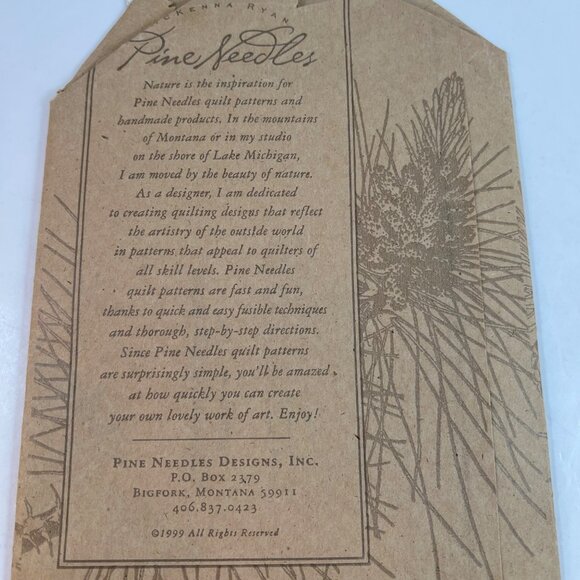 McKenna Ryan
Pine Needles
Nature is the inspiration for
Pine Needles quilt patterns and
handmade products. In the mountains
of Montana or in my studio
on the shore of Lake Michigan,
I am moved by the beauty of nature.
As a designer, I am dedicated
to creating quilting designs that reflect
the artistry of the outside world
in patterns that appeal to quilters of
all skill levels. Pine Needles
quilt patterns are fast and fun,
thanks to quick and easy fusible techniques
and thorough, step-by-step directions.
Since Pine Needles quilt patterns
are surprisingly simple, you'll be amazed
at how quickly you can create
your own lovely work of art. Enjoy!
Pine Needles Designs, Inc.
P.O. Box 2379
Bigfork, Montana 59911
406.837.0423
©1999 All Rights Reserved